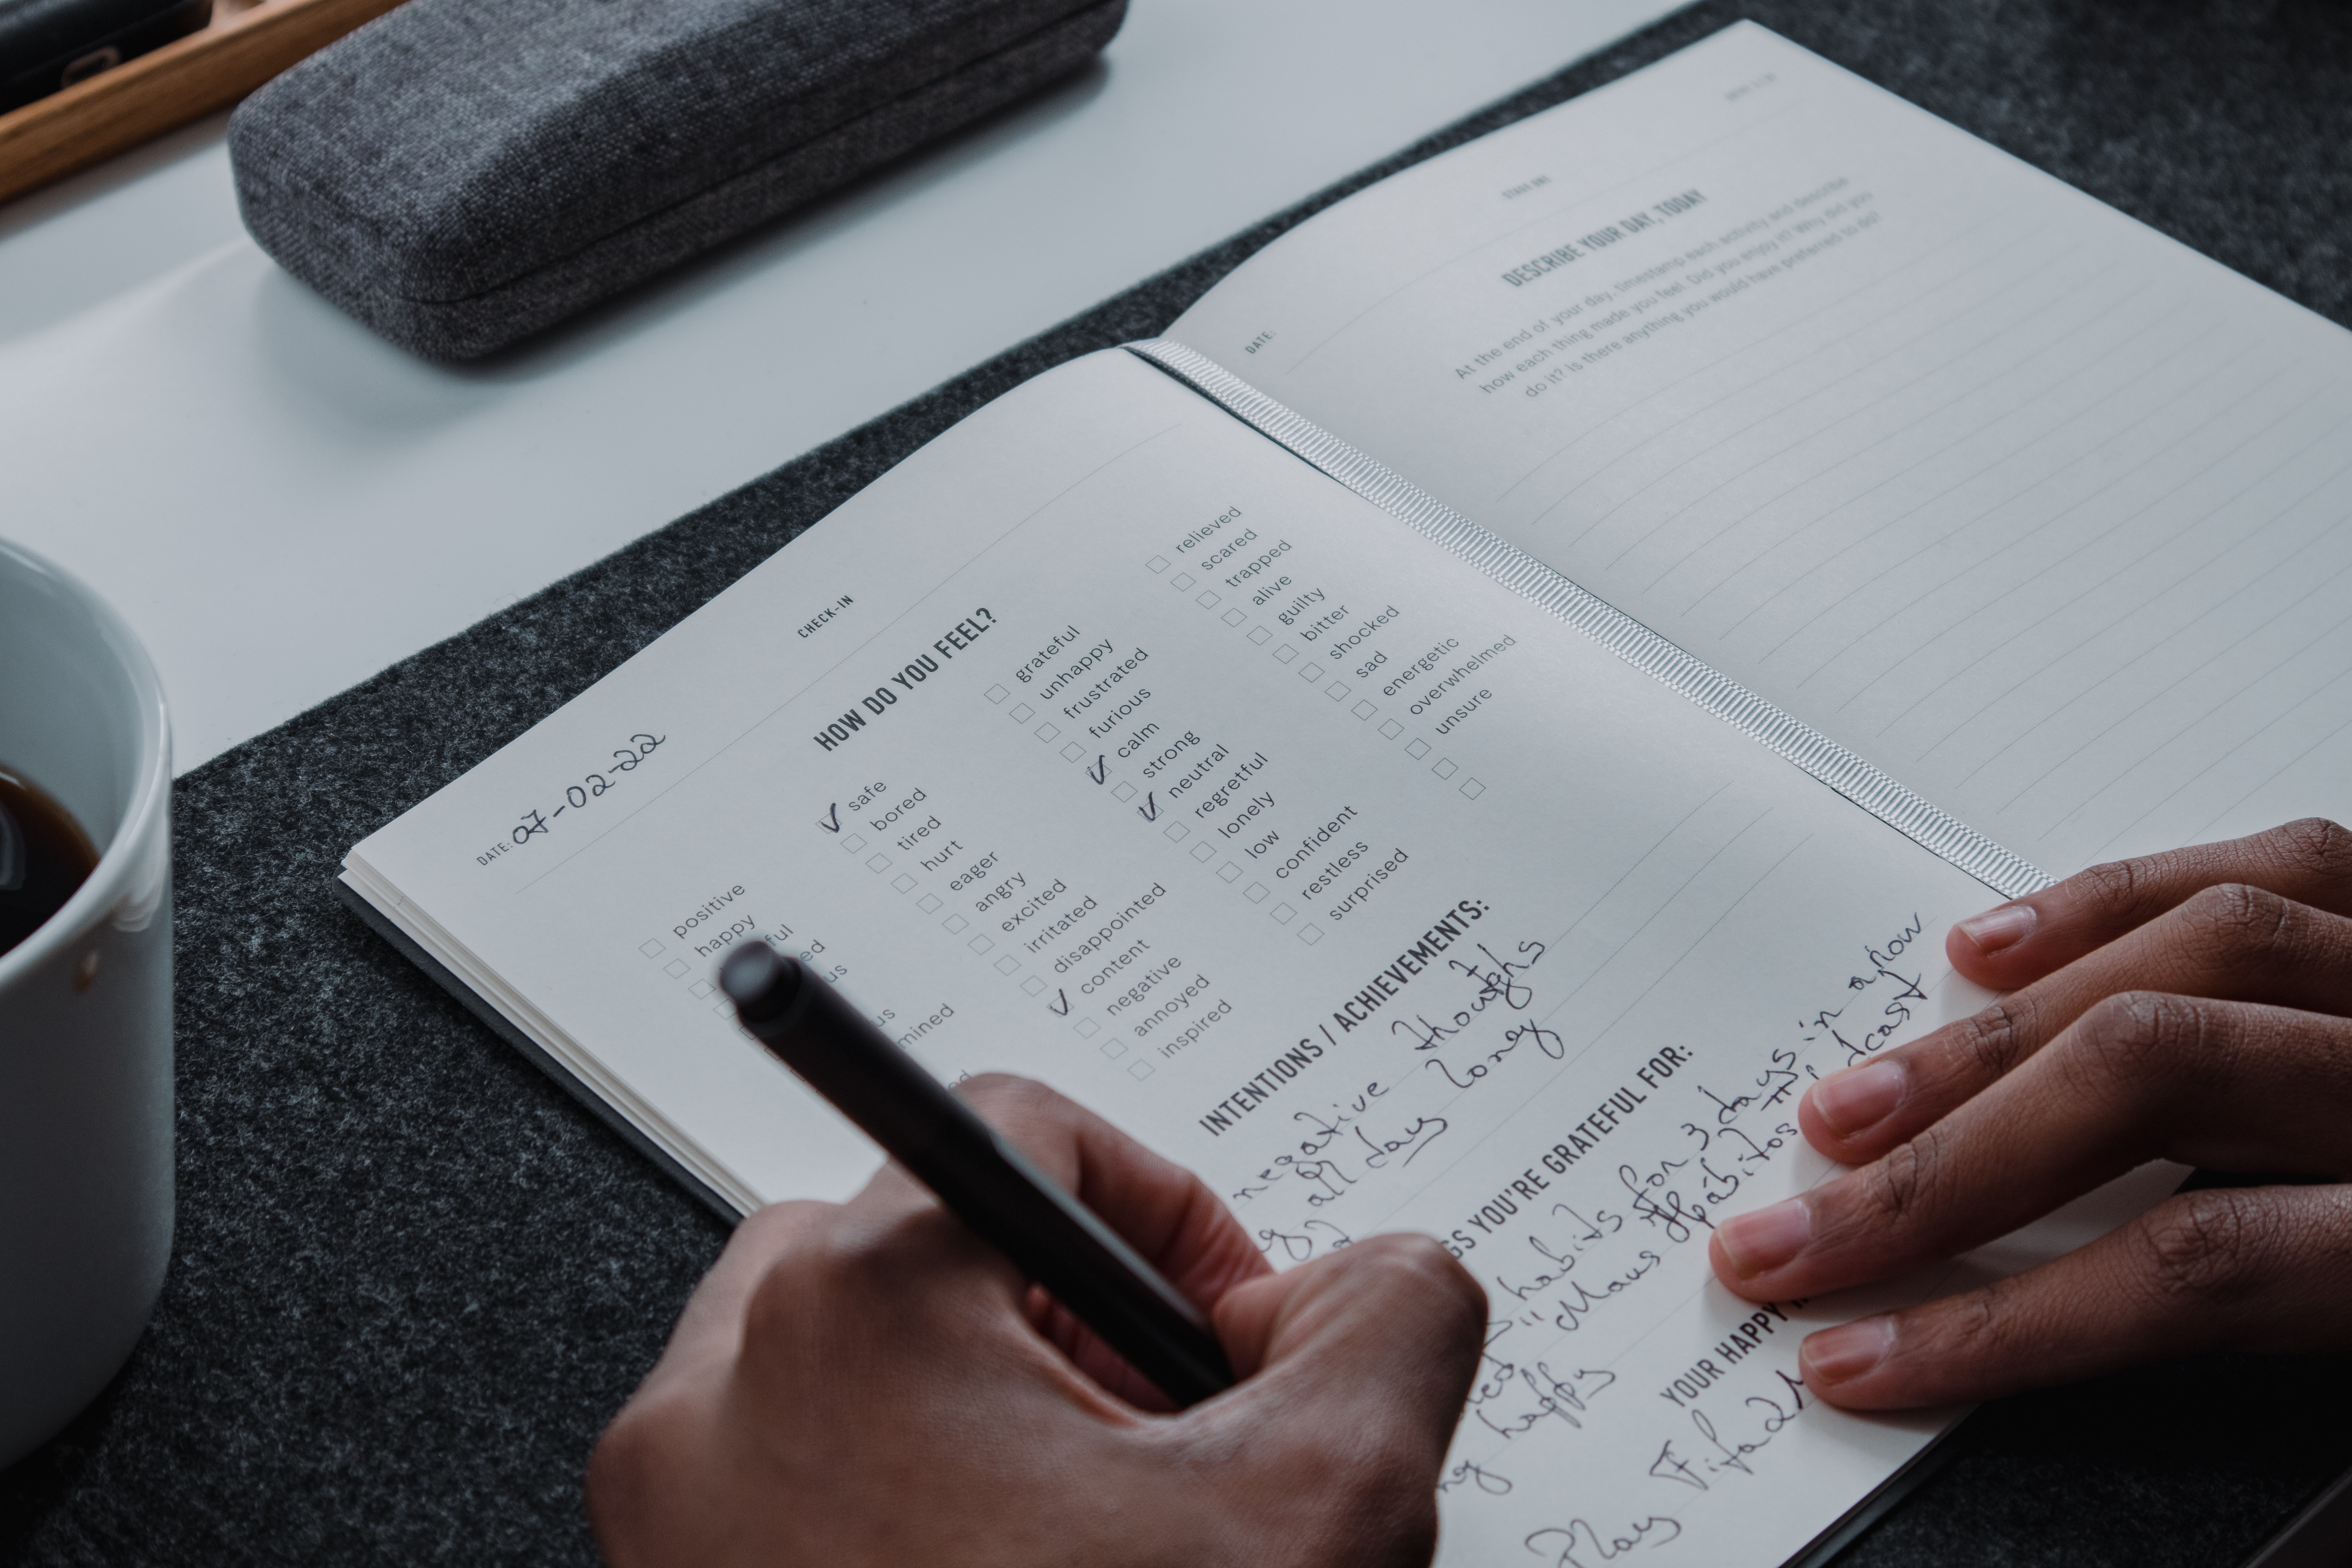 CHECK-IN
DATE: 07-02-22
HOW DO YOU FEEL?
positive
happy
safe
bored
tired
hurt
eager
angry
excited
irritated
disappointed
content
negative
annoyed
inspired
grateful
unhappy
frustrated
furious
calm
strong
neutral
regretful
lonely
low
confident
restless
surprised
relieved
scared
trapped
alive
guilty
bitter
shocked
sad
energetic
overwhelmed
unsure
INTENTIONS / ACHIEVEMENTS:
negative thoughts
all day long
YOU'RE GRATEFUL FOR:
habits for 3 days in a row
"Maus Hábitos"
happy
YOUR HAPPY
Play Fifa21
DATE:
DESCRIBE YOUR DAY, TODAY
At the end of your day, timestamp each activity and describe
how each thing made you feel. Did you enjoy it? Why did you
do it? Is there anything you would have preferred to do?